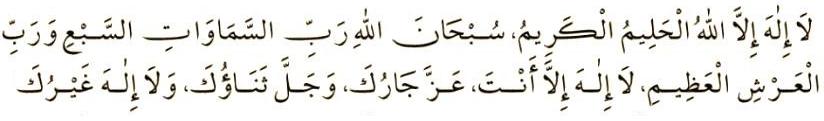 لَا إِلٰهَ إِلَّا اللهُ الْحَلِيمُ الْكَرِيمُ، سُبْحَانَ اللهِ رَبِّ السَّمَاوَاتِ السَّبْعِ وَرَبِّ
الْعَرْشِ الْعَظِيمِ، لَا إِلٰهَ إِلَّا أَنْتَ، عَزَّ جَارُكَ، وَجَلَّ ثَنَاؤُكَ، وَلَا إِلٰهَ غَيْرُكَ